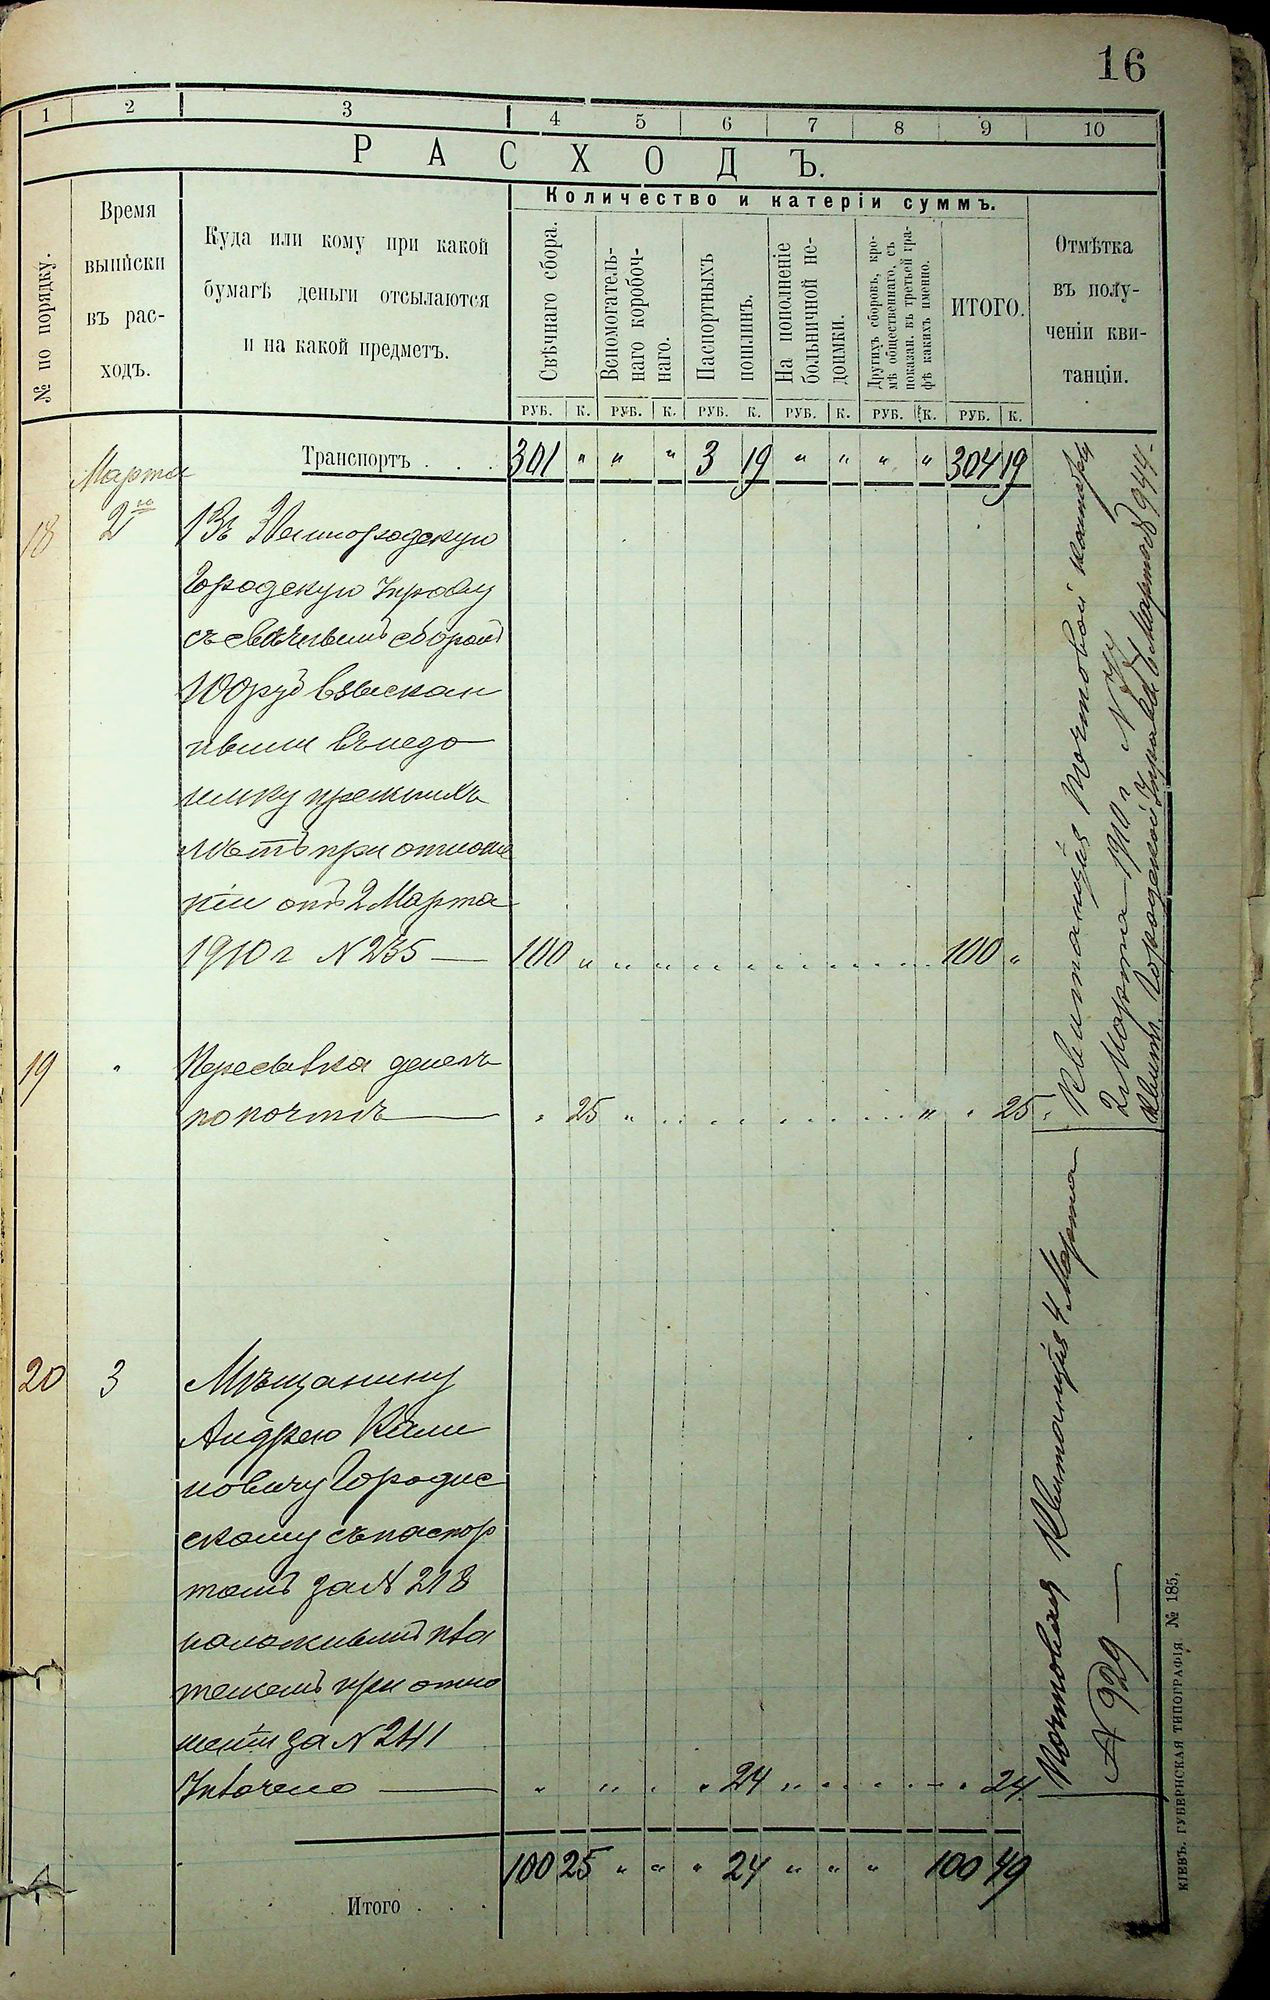 16
1 2 3 4 5 6 7 8 9 10
РАСХОДЪ.
№ по порядку.
Время
выписки
въ рас-
ходъ.
Куда или кому при какой
бумагѣ деньги отсылаются
и на какой предметъ.
Количество и катеріи суммъ.
Свѣчнаго сбора.
Вспомогатель-
наго коробоч-
наго.
Паспортныхъ
пошлинъ.
На пополненіе
больничной не-
доимки.
Другихъ сборовъ, кро-
мѣ общественнаго, съ
показан. въ третьей гра-
фѣ какихъ именно.
ИТОГО.
Отмѣтка
въ полу-
ченіи кви-
танціи.
РУБ. К. РУБ. К. РУБ. К. РУБ. К. РУБ. К. РУБ. К.
Транспортъ . . . 301 " " " 3 19 " " " " 304 19
Марта
18 2го Въ Звенигородскую
Городскую Управу
съ свѣчнымъ сборомъ
100 руб взыскан
нымъ въ недо
имку прежнихъ
лѣтъ при отноше
ніи отъ 2 Марта
1910 г N 235 — 100 " " " " " " " " " 100 "
19 " Пересылка денегъ
по почтѣ — " 25 " " " " " " " " " 25
Квитанція Почтовой конторы
2 Марта 1910 г. N
Квит. Городской Управы 6 Марта № 944.
20 3 Мѣщанину
Андрею Кали
новичу Городис
скому съ паспор
томъ за № 218
наложнымъ пла
тежемъ при отно
шеніи за N 241
Уплочено — " " " " " 24 " " " " " 24
Почтовая Квитанція 4 Марта
№ 929 —
Итого . . . 100 25 " " " 24 " " " 100 49
КІЕВЪ. ГУБЕРНСКАЯ ТИПОГРАФІЯ № 185,